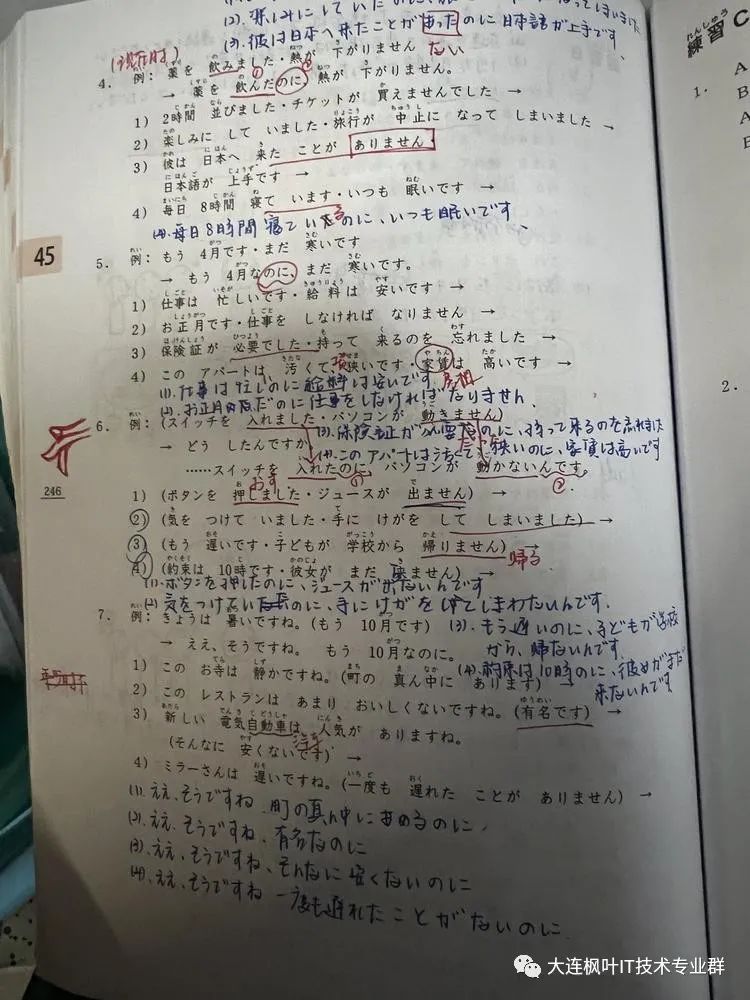 (2). 楽しみにしていたのに、
(3). 彼は日本へ来たことがあったのに日本語が上手です。
ない
(现在时)
4. 例: 薬を 飲みました・熱が 下がりません
→ 薬を 飲んだのに、熱が 下がりません。
1) 2時間 並びました・チケットが 買えませんでした →
2) 楽しみに して いました・旅行が 中止に なって しまいました →
3) 彼は 日本へ 来た ことが ありません・
日本語が 上手です →
4) 毎日 8時間 寝て います・いつも 眠いです →
(4). 毎日8時間寝ているのに、いつも眠いです、
45
5. 例: もう 4月です・まだ 寒いです
→ もう 4月なのに、まだ 寒いです。
1) 仕事は 忙しいです・給料は 安いです →
2) お正月です・仕事を しなければ なりません →
3) 保険証が 必要でした・持って 来るのを 忘れました →
4) この アパートは 汚くて、狭いです・家賃は 高いです →
(1). 仕事は忙しいのに給料は安いです。
(2). お正月なのに仕事をしなければなりません、
6. 例: (スイッチを 入れました・パソコンが 動きません)
(3). 保険証が必要なのに、持って来るのを忘れました
→ どう したんですか。
(4). このアパートはうちくて狭いのに、家賃は高いです
……スイッチを 入れたのに、パソコンが 動かないんです。
246
1) (ボタンを 押しました・ジュースが 出ません) →
2) (気を つけて いました・手に けがを して しまいました) →
3) (もう 遅いです・子どもが 学校から 帰りません) →
帰る
4) (約束は 10時です・彼女が まだ 来ません) →
(1). ボタンを押したのに、ジュースが出ないんです
(2). 気をつけていたのに、手にけがをしてしまわないんです.
7. 例: きょうは 暑いですね。(もう 10月です)
(3). もう遅いのに、子どもが学校
から、帰ないんです
→ ええ、そうですね。 もう 10月なのに。
1) この お寺は 静かですね。(町の 真ん中に あります) →
(4). 約束は10時のに、彼女がまだ
来ないんです
2) この レストランは あまり おいしくないですね。(有名です) →
3) 新しい 電気自動車は 人気が ありますね。
(そんなに 安くないです) →
4) ミラーさんは 遅いですね。(一度も 遅れた ことが ありません) →
(1). ええ、そうですね 町の真ん中にあるのに、
(2). ええ、そうですね、有名なのに
(3). ええ、そうですね、そんなに安くないのに
(4). ええ、そうですね 一度も遅れたことがないのに
練習C
1. A
B
A
B
2.
大连枫叶IT技术专业群